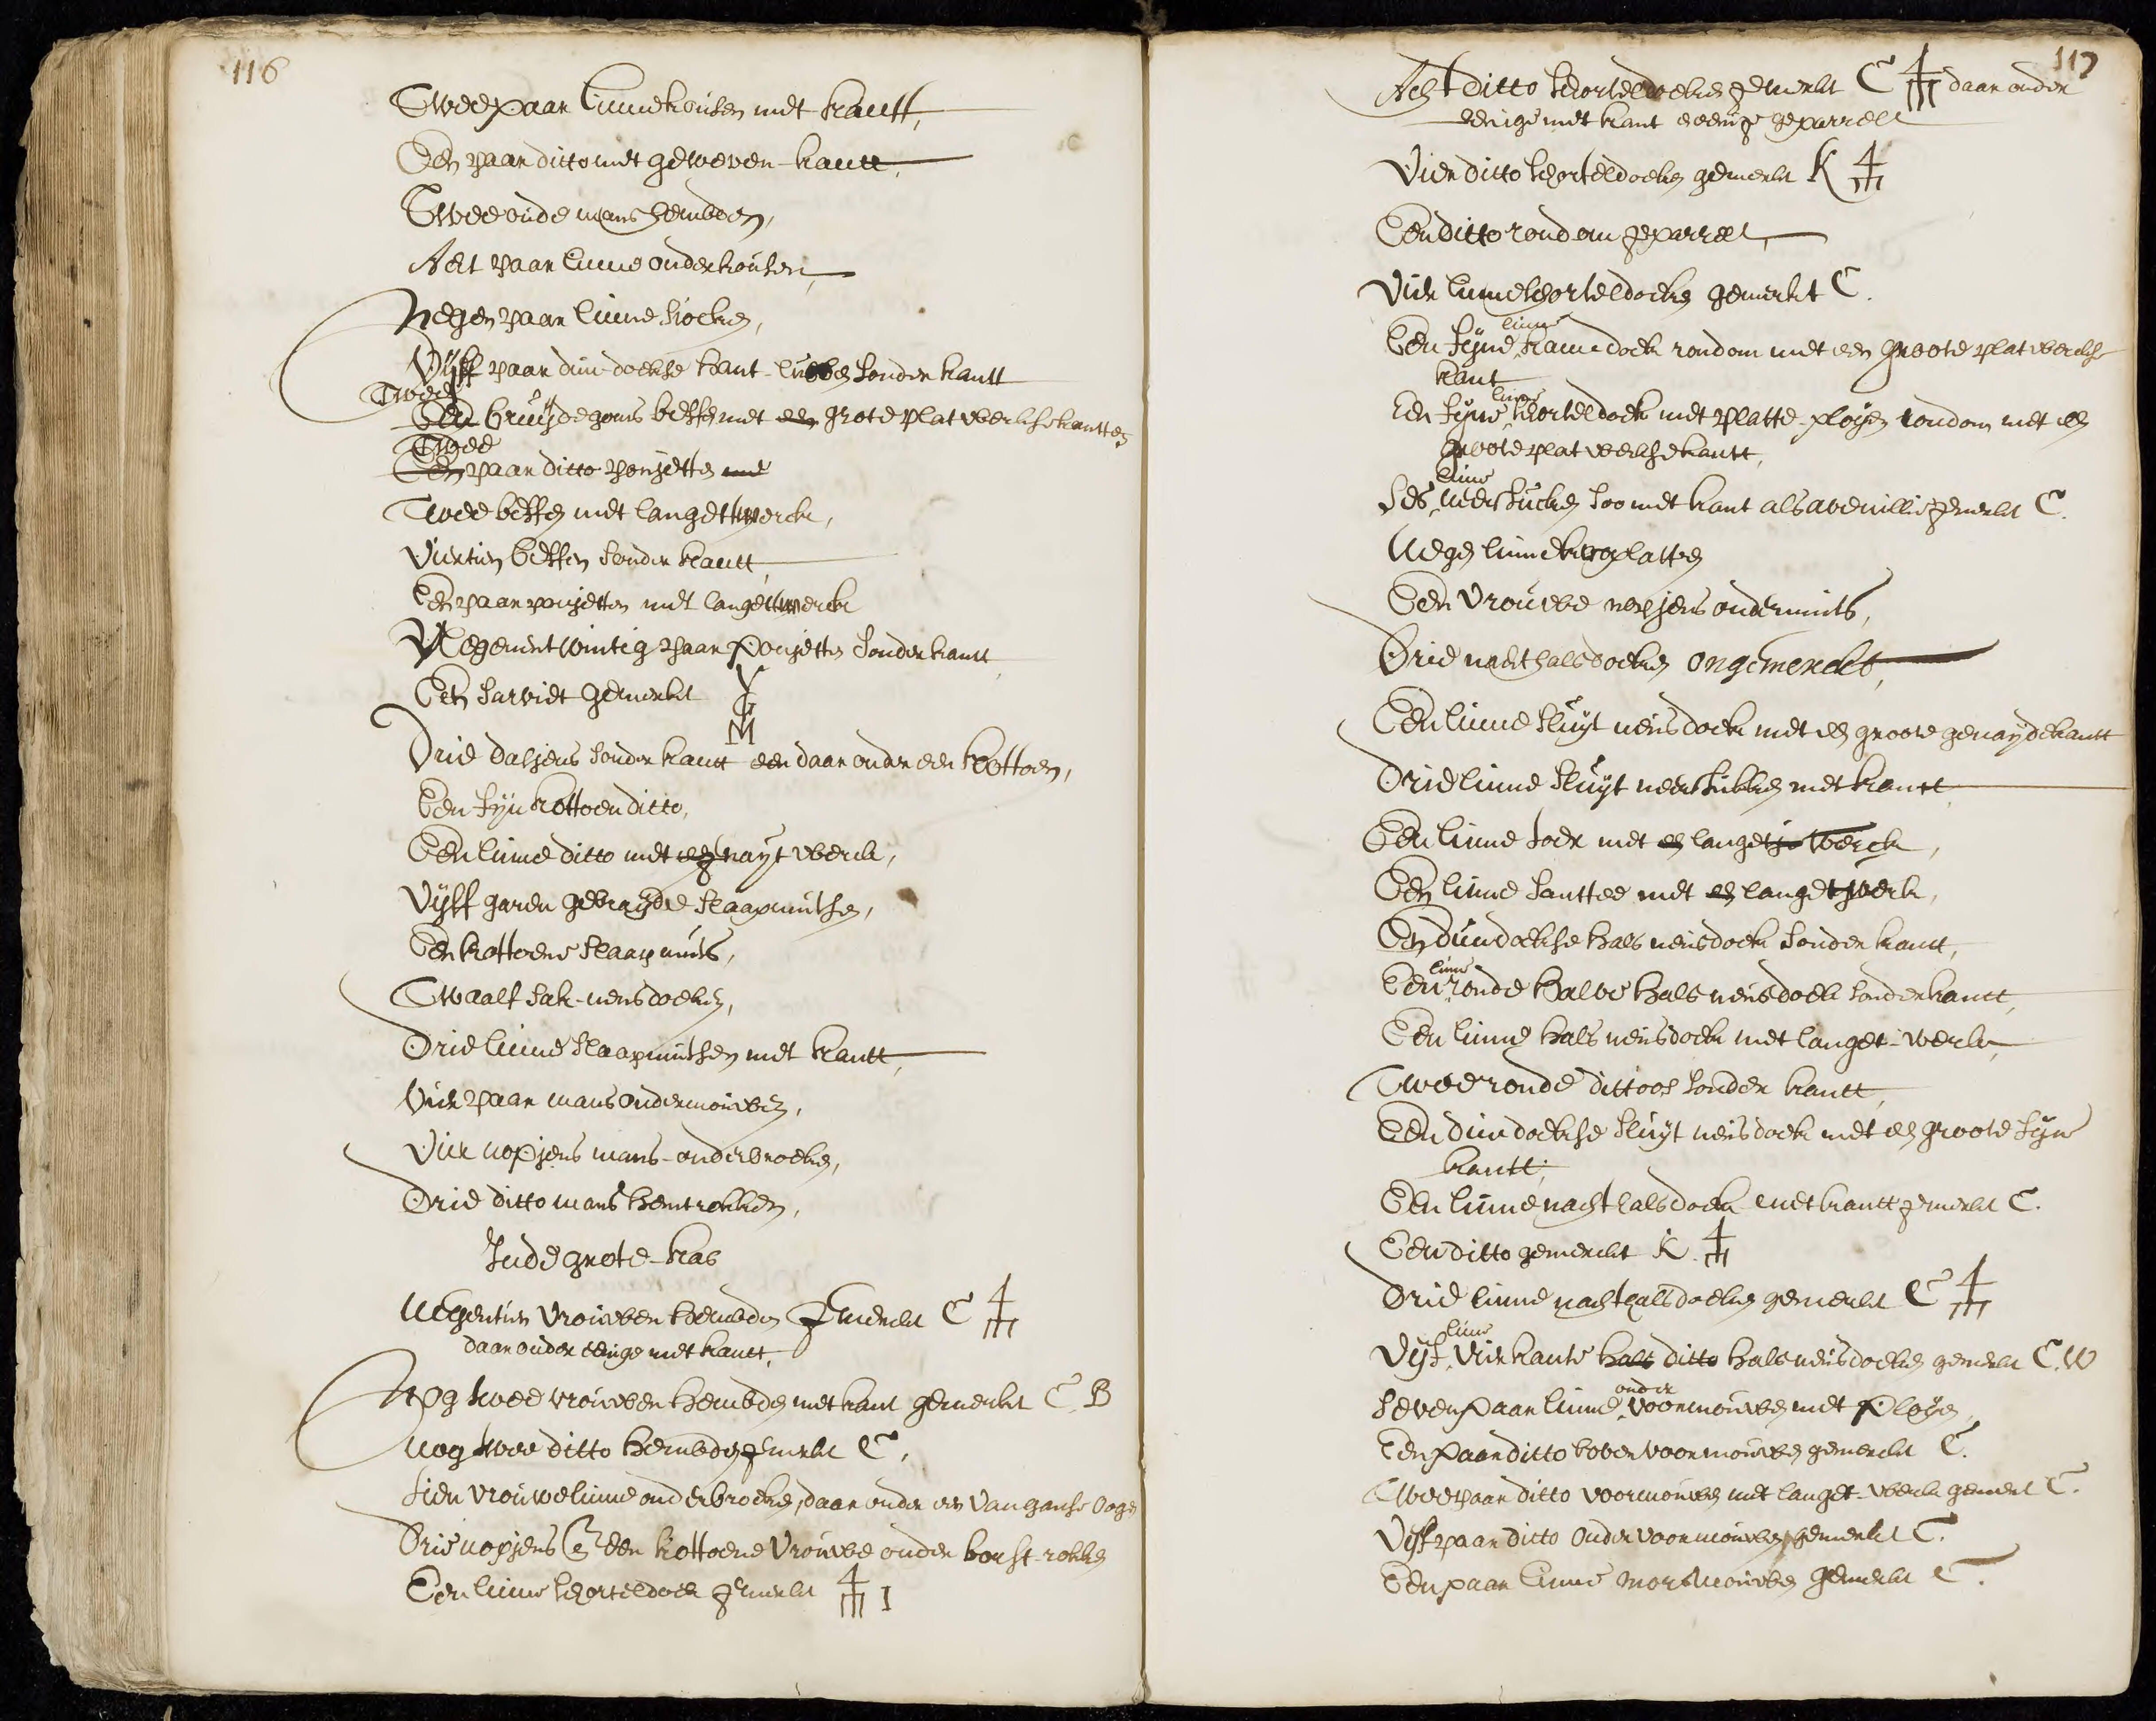 116
Twee paar linne kousen met kantt,
Een paar ditto met geweven-kantt,
Twee oude mans hembden,
Acht paar linne onderkousen,
Negen paar linne socken,
Vijff paar dun-doekse hant-lubben sonder kantt
Twee
Een bruijdegoms beffen met een grote plat werckse kantten
Twee
Een paar ditto ponjetten met
Twee beffen met langettwerck,
Viertien beffen sonder kantt,
Een paar ponjetten met langettwerck
Negenentwintig paar Ponjetten sonder kantt,
Een sarviet gemerkt
Drie dasjens sonder kantt een daar onder een kottoen,
Een fijn kottoen ditto,
Een linne ditto met een nayt werck,
Vijff garen gebreijde slaapmutsen,
Een kottoene slaapmuts,
Twaalf sak-neusdoeken,
Drie linne slaapmutsen met kantt,
Vier paar mans ondermouwen,
Vier nopjens mans-onderbroeken,
Drie ditto mans hemtrokken,
In de grote-kas
Negentien vrouwen hembden gemerckt C 4
daar onder eenige met kantt,
Nog twee vrouwen hembden met kant gemerckt C. B
nog twee ditto hembden gemerkt C,
Tien vrouwe linne onderbroeken, daar onder een van ganse oogen
Drie nopjens & een kottoene vrouwe onder borst-rokken
Een linne schorteldoek gemerkt 4 I
117
Acht ditto schorteldoeken gemerkt C 4 daar onder
eenige met kant eenige geparrelt
Vier ditto schorteldoeken gemerkt K 4
Een ditto rondom geparrelt,
Vier linne schorteldoeken gemerkt C.
linne
Een fijne kamdoek rondom met een groote plat werckse
kant
linne
Een fijne schorteldoek met platte-ployen rondom met een
groote plat werckse kantt,
linne
Ses neerstucken soo met kant als gemerkt C.
Negen linne kroplatten
Een vrouwe nopjens ondermuts,
Drie nachthalsdoeken ongemerckt,
Een linne sluijt neusdoek met een groote genaijde kantt
Drie linne sluijt neerstukken met kantt
Een linne met een langetje werck,
Een linne met een langetwerk,
Een dundoekse hals neusdoek sonder kantt,
linne
Een ronde halve hals neusdoek sonder kantt,
Een linne hals neusdoek met langet-werk,
Twee ronde dittoos sonder kantt,
Een dundoekse sluijt neusdoek met een groote fijne
kantt,
Een linne nachthalsdoek met kantt gemerkt C.
Een ditto gemerckt K. 4
Drie linne nachthalsdoeken gemerkt C 4
linne
Vijf vierkante hals ditto halsneusdoeken gemerkt C. W
onder
Seven Paar linne voormouwen met Ployen
Een Paar ditto boven voormouwen gemerckt C.
Twee paar ditto voormouwen met langet-werck gemerkt C.
Vijff paar ditto onder voormouwen gemerkt C.
Een paar linne morsmouwen gemerkt C.